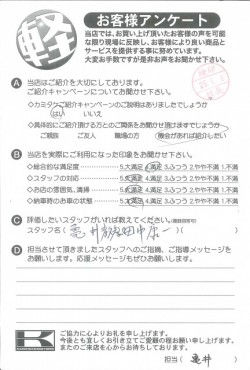 軽
お客様アンケート
当店では、お買い上げ頂いたお客様の声を可能
な限り現場に反映し、お客様により良い商品と
サービスを提供する事に努めています。
大変お手数ですが是非お声をお聞かせ下さい。
A 当店はご紹介を大切にしております。
ご紹介キャンペーンについてお聞かせ下さい。
いいえ
ご親族 ご友人 職場の方 機会があれば紹介したい
B 当店を実際にご利用になった印象をお聞かせ下さい。
◇総合的な満足度 5.大満足 4.満足 3.ふつう 2.やや不満 1.不満
◇スタッフの対応 5.大満足 4.満足 3.ふつう 2.やや不満 1.不満
◇お店の雰囲気、清掃 5.大満足 4.満足 3.ふつう 2.やや不満 1.不満
◇納車時のお車の状態 5.大満足 4.満足 3.ふつう 2.やや不満 1.不満
C 評価したいスタッフがいれば教えてください。
スタッフ名
D 担当させて頂きましたスタッフへのご指摘、ご指導メッセージを
お願いします。応援メッセージもぜひお願いします。
K
ご協力に心よりお礼を申し上げます。
今後とも宜しくお引き立てご愛顧の程お願い申し上げます。
またのご来店を心からお待ちしております。
担当( 亀井 )